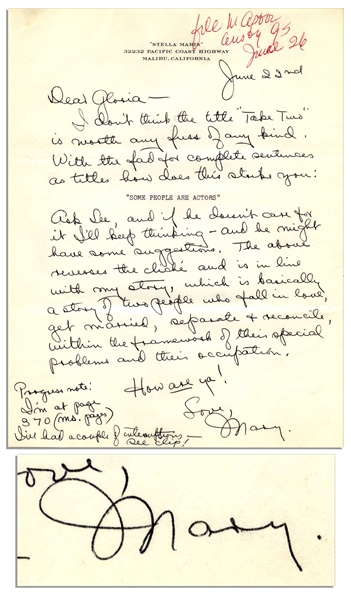 file M Astor
95
June 26
"STELLA MARIS"
32232 PACIFIC COAST HIGHWAY
MALIBU, CALIFORNIA
June 22nd
Dear Gloria—
I don't think the title "Take Two"
is worth any fuss of any kind.
With the fad for complete sentences
as titles how does this strike you:
"SOME PEOPLE ARE ACTORS"
Ask Lee, and if he doesn't care for
it I'll keep thinking – and he might
have some suggestions. The above
reverses the cliché and is in line
with my story, which is basically
a story of two people who fall in love,
get married, separate & reconcile,
within the framework of their special
problems and their occupation.
How are ya!
Love,
Mary.
Progress note:
I'm at page
370 (ms. pages)
I've had a couple of interruptions –
see clip!
Love,
Mary.